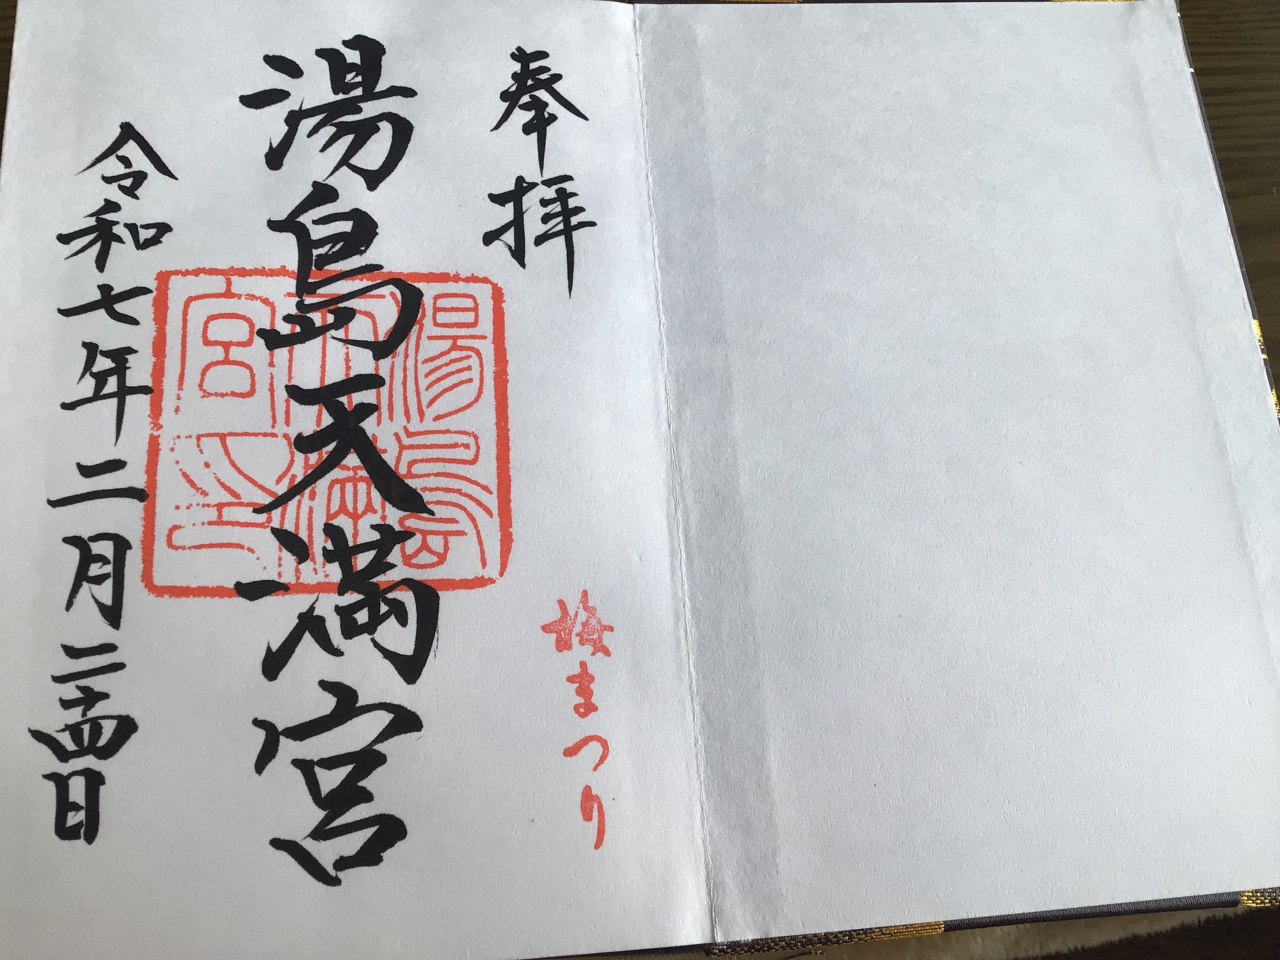 奉拝
梅まつり
湯島天満宮
湯島天満宮之印
令和七年二月二十四日